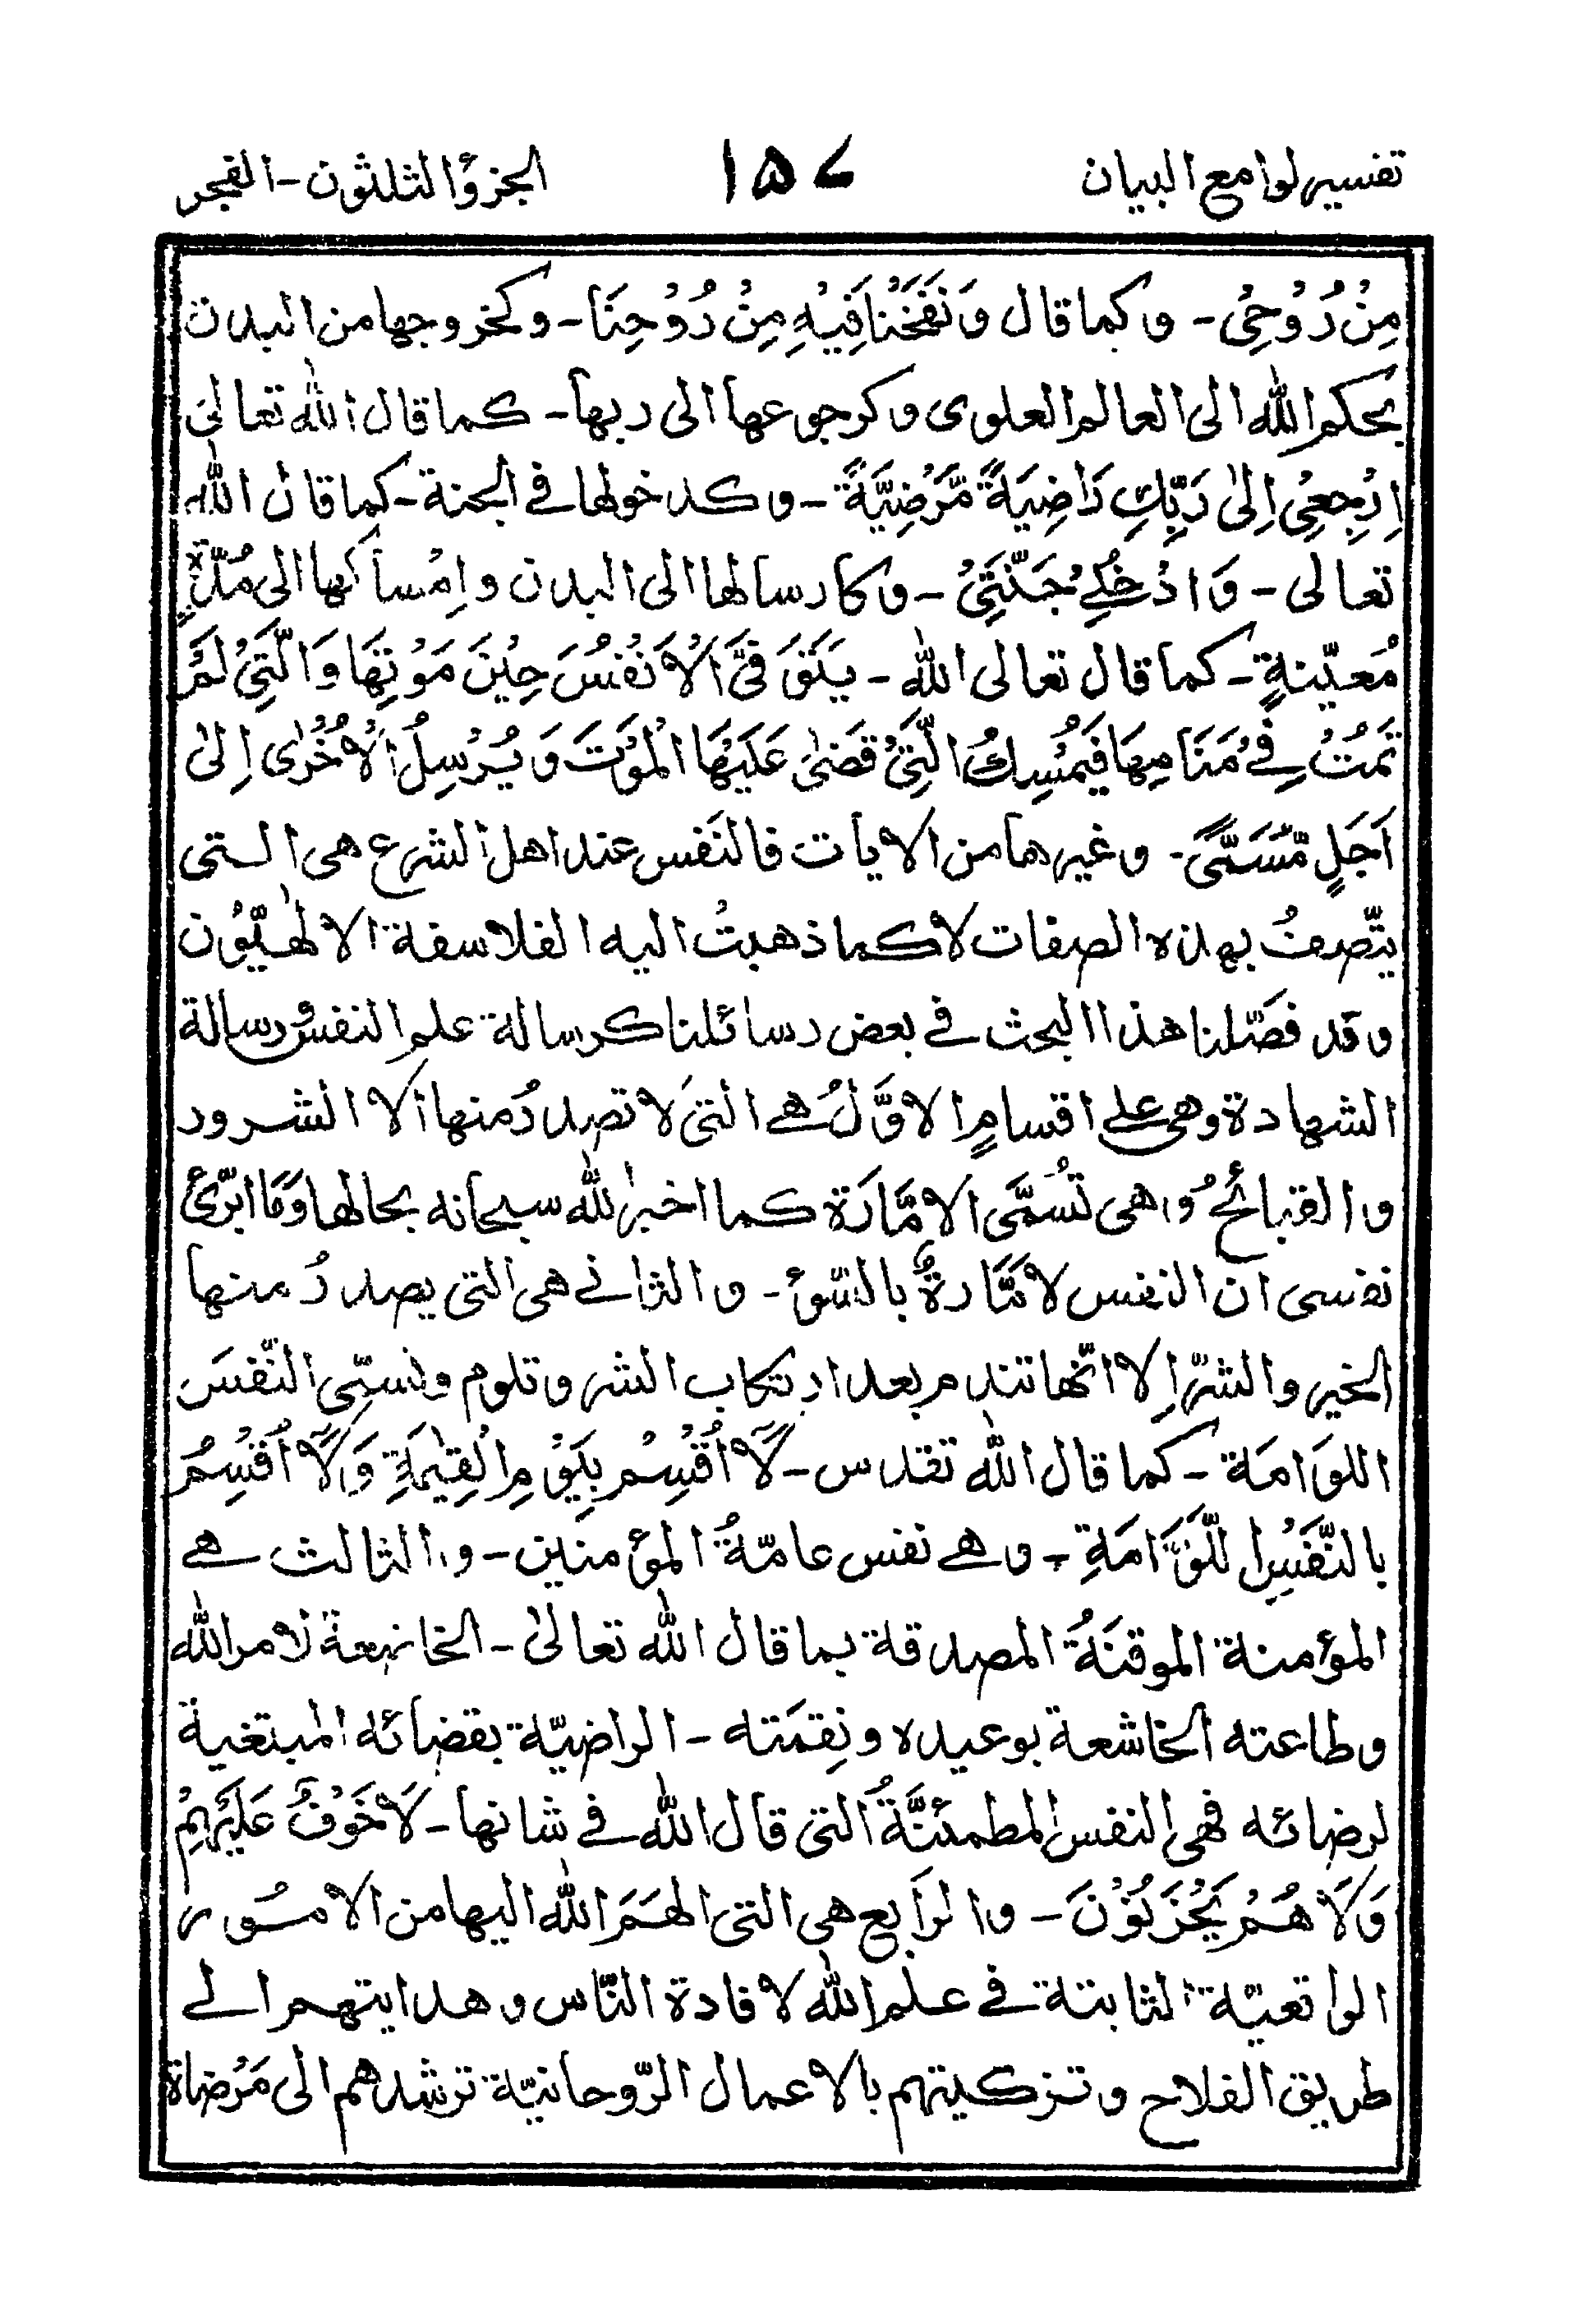 تفسير لوامع البيان ١٥٧ الجزؤ الثلثون - الفجر
مِنْ رُوْحِىْ - و كما قال وَنَفَخْنَا فِيْهِ مِنْ رُوْحِنَا - و كخروجها من البدن
بحكم الله الى العالم العلوى و كرجوعها الى ربها - كما قال الله تعالىٰ
اِرْجِعِىْ اِلىٰ رَبِّكِ رَاضِيَةً مَّرْضِيَّةً - و كدخولها فى الجنة - كما قال الله
تعالى - وَادْخُلِىْ جَنَّتِىْ - و كارسالها الى البدن و اِمْساكها الى مُدّةٍ
مُعيّنةٍ - كما قال تعالى الله - يَتَوَفَّى الْاَنْفُسَ حِيْنَ مَوْتِهَا وَالَّتِىْ لَمْ
تَمُتْ فِىْ مَنَامِهَا فَيُمْسِكُ الَّتِىْ قَضىٰ عَلَيْهَا الْمَوْتَ وَيُرْسِلُ الْاُخْرٰى اِلىٰ
اَجَلٍ مُّسَمًّى - و غيرها من الايات فالنَفس عند اهل الشرع هى الستى
يتّصفُ بهذه الصفات لا كما ذهبتْ اليه الفلاسفة الالٰهيّون
و قد فصّلنا هذا البحث فى بعض رسائلنا كرسالة علم النفس و رسالة
الشهادة و هى على اقسامٍ الاوَّلُ هى التى لا تصدرُ منها الا الشرور
و القبائحُ و هى تُسَمَّى الامَّارَة كما اخبر الله سبحانه بحالها وَمَا ابرّئ
نفسى ان النفس لامَّارةٌ بالسّوء - و الثانى هى التى يصدرُ منها
الخير و الشرّ اِلا انّها تندم بعد ارتكاب الشر و تلوم و تسمّى النّفسَ
اللوَامَة - كما قال الله تقدس - لَا اُقْسِمُ بِيَوْمِ الْقِيٰمَةِ وَلَا اُقْسِمُ
بالنَّفْسِ اللَّوَّامَةِ - و هى نفس عامّةُ المؤمنين - و الثالث هى
المؤمنة الموقنَةُ المصدقة بما قال الله تعالىٰ - الخاضعة لامر الله
و طاعته الخاشعة بوعيده و نِقمَته - الراضيّة بقضائه المبتغية
لرضائه فهى النفس المطمئنَّةُ التى قال الله فى شانها - لَا خَوْفٌ عَلَيْهِمْ
وَلَا هُمْ يَحْزَنُوْنَ - و الرَابع هى التى الهَمَ الله اليها من الامُور
الواقعيّة الثابتة فى علم الله لافادة النّاس و هدايتهم الى
طريق الفلاح و تزكيتهم بالاعمال الرّوحانيّة ترشدهم الى مَرْضاة